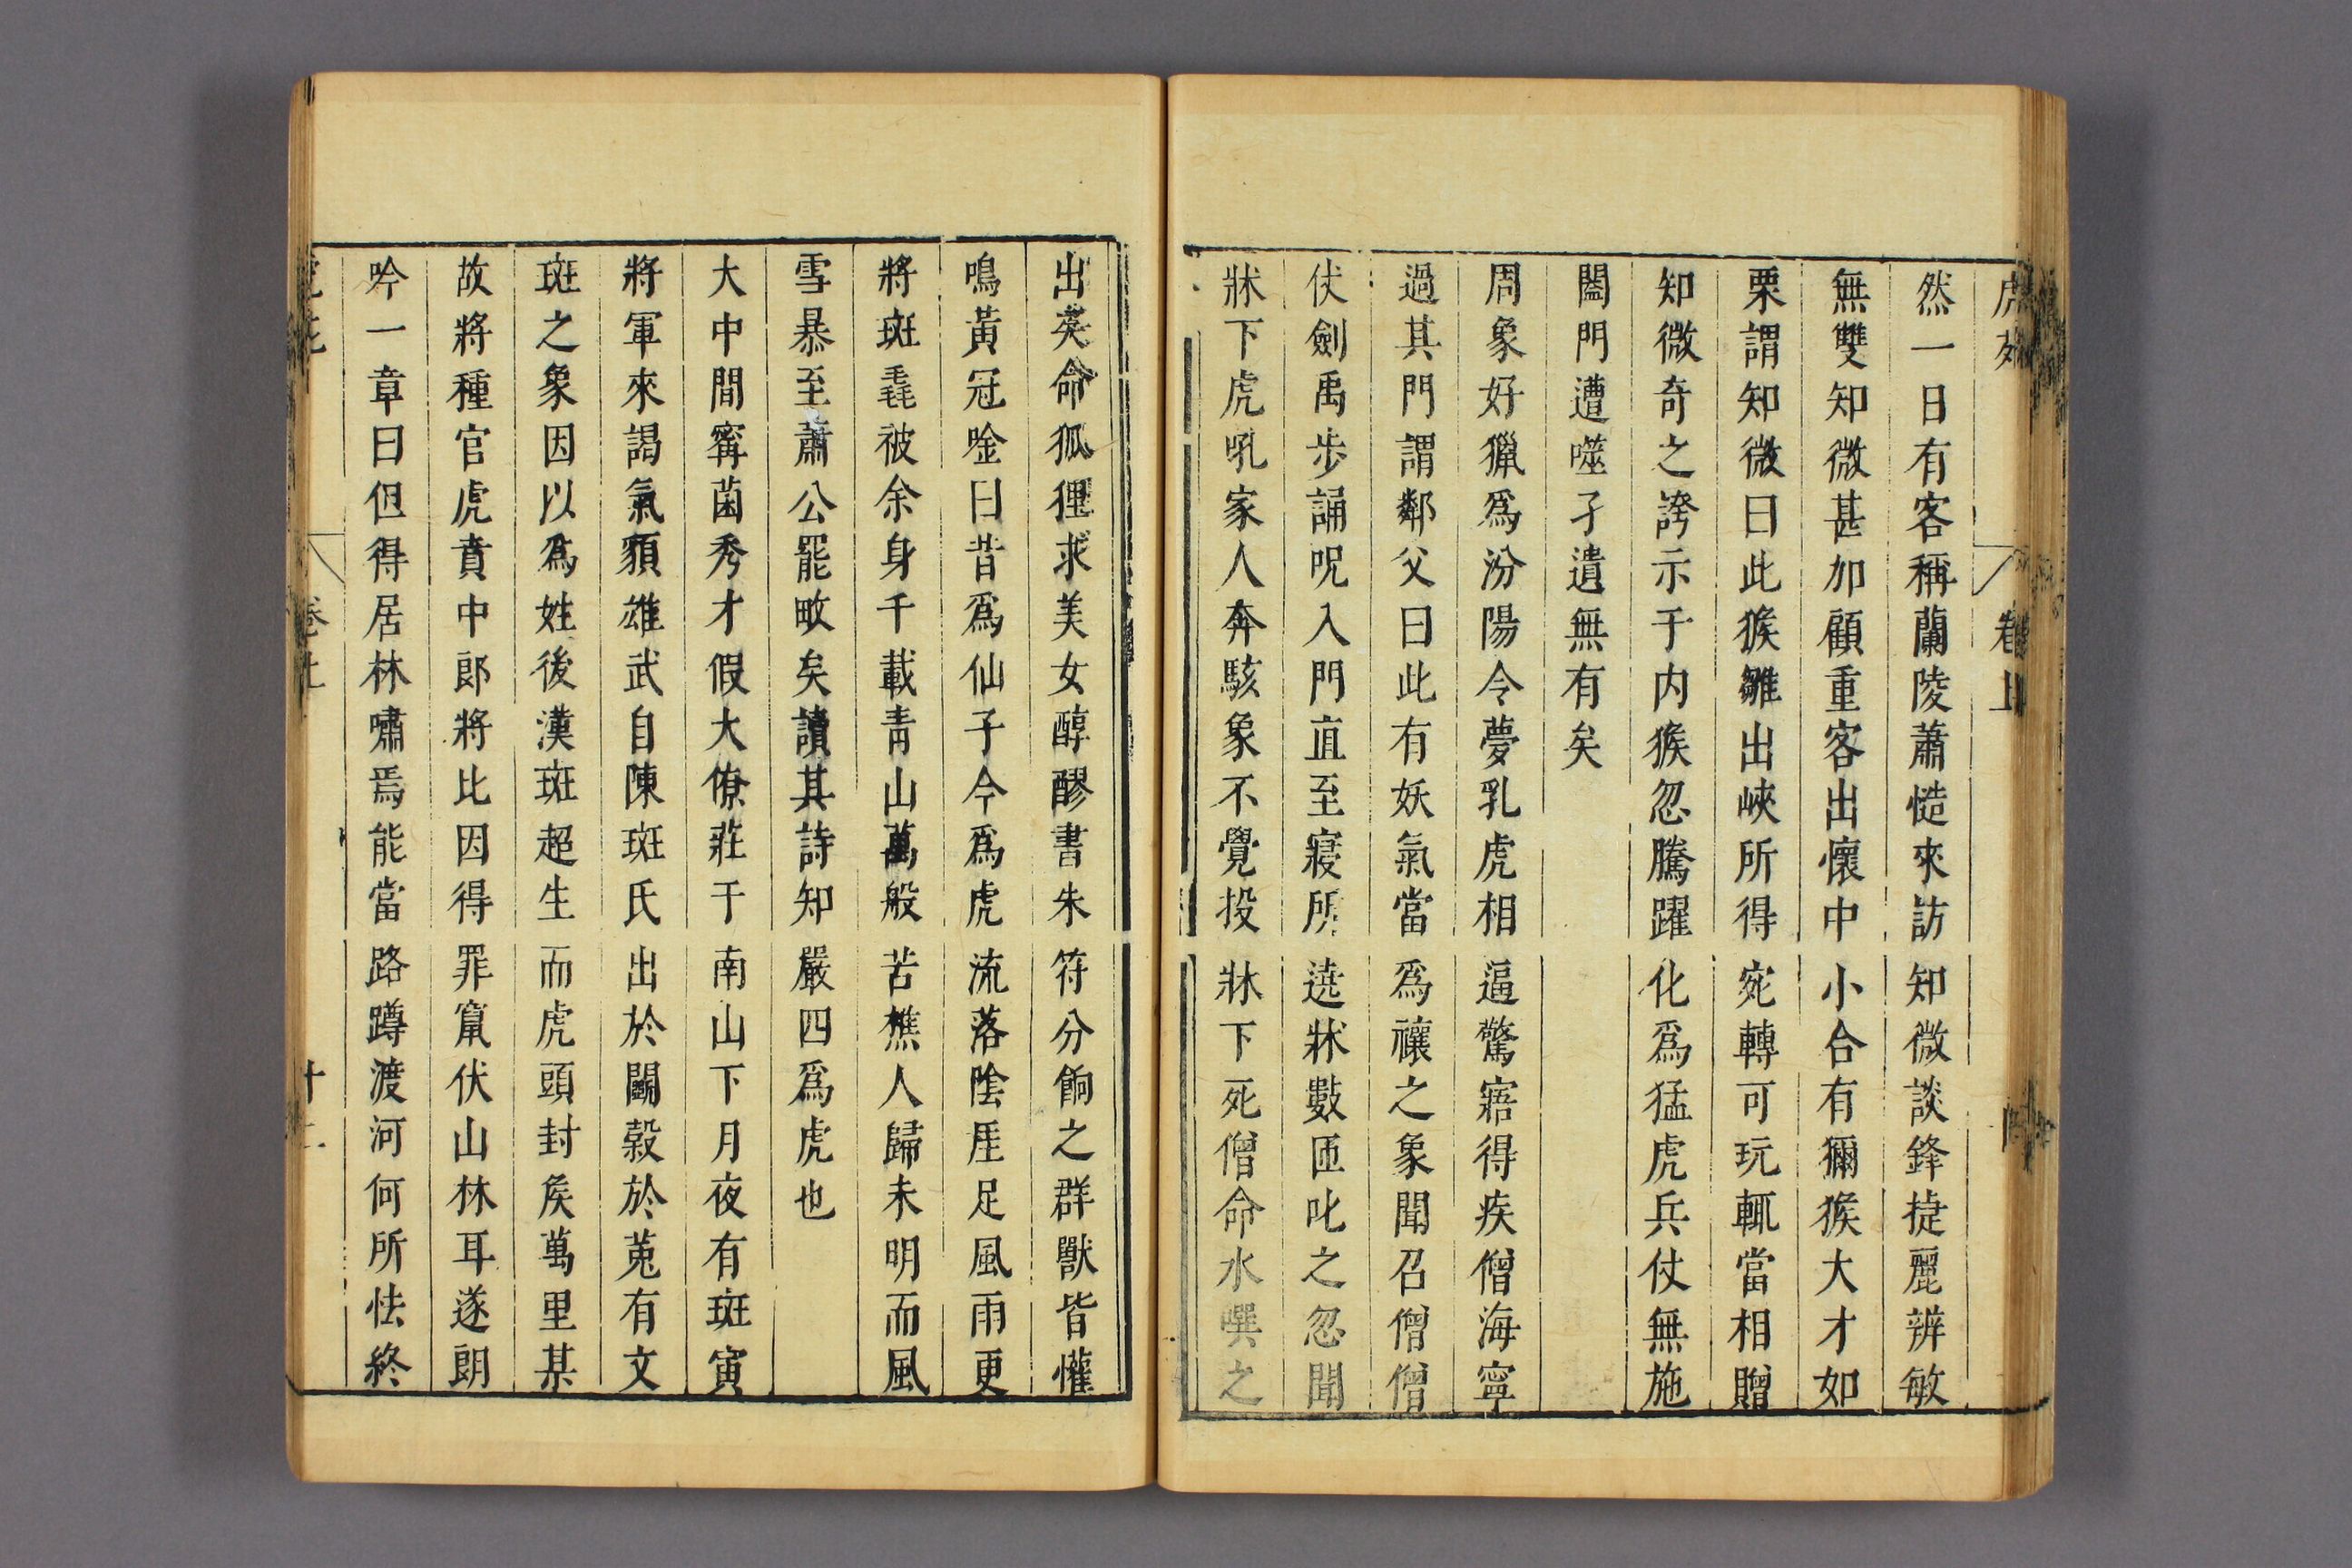 虎苑 卷上
然一日有客稱蘭陵蕭慥來訪知微談鋒捷麗辨敏
無雙知微甚加顧重客出懷中小合有獮猴大才如
栗謂知微曰此猴雛出峽所得宛轉可玩輒當相贈
知微奇之誇示于内猴忽騰躍化爲猛虎兵仗無施
闔門遭噬孑遺無有矣
周象好獵爲汾陽令夢乳虎相逼驚寤得疾僧海寧
過其門謂鄰父曰此有妖氣當爲禳之象聞召僧僧
仗劍禹步誦呪入門直至寢所遶牀數匝叱之忽聞
牀下虎吼家人奔駭象不覺投牀下死僧命水噀之
出矣命狐狸求美女醇醪書朱符分餉之群獸皆懽
鳴黃冠唫曰昔爲仙子今爲虎流落陰厓足風雨更
將斑毳被余身千載靑山萬般苦樵人歸未明而風
雪暴至蕭公罷畋矣讀其詩知嚴四爲虎也
大中間甯茵秀才假大僚莊于南山下月夜有斑寅
將軍來謁氣貌雄武自陳斑氏出於鬬穀於菟有文
斑之象因以爲姓後漢斑超生而虎頭封矦萬里某
故將種官虎賁中郎將比因得罪竄伏山林耳遂朗
吟一章曰但得居林嘯焉能當路蹲渡河何所怯終
卷上 十二